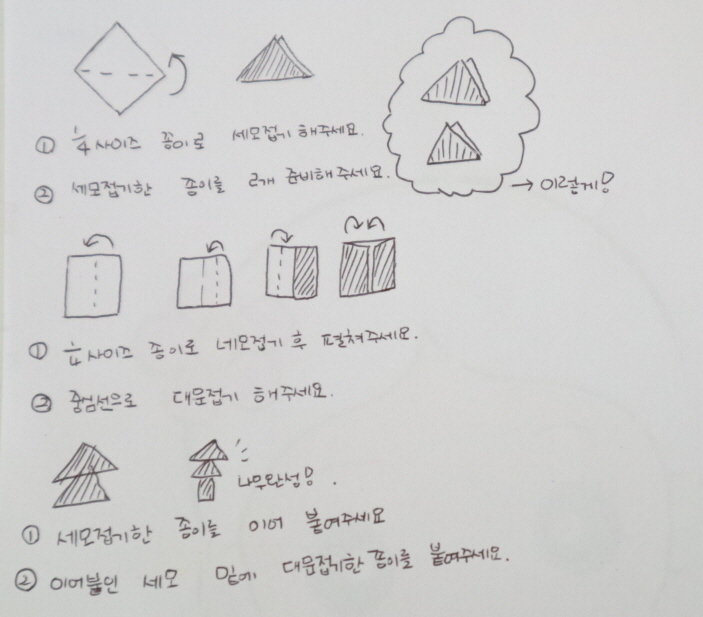 ① 1/4 사이즈 종이로 세모접기 해주세요.
② 세모접기한 종이를 2개 준비해주세요.
→ 이렇게!
① 1/4 사이즈 종이로 네모접기 후 펼쳐주세요.
② 중심선으로 대문접기 해주세요.
나무완성!
① 세모접기한 종이를 이어 붙여주세요
② 이어붙인 세모 밑에 대문접기한 종이를 붙여주세요.